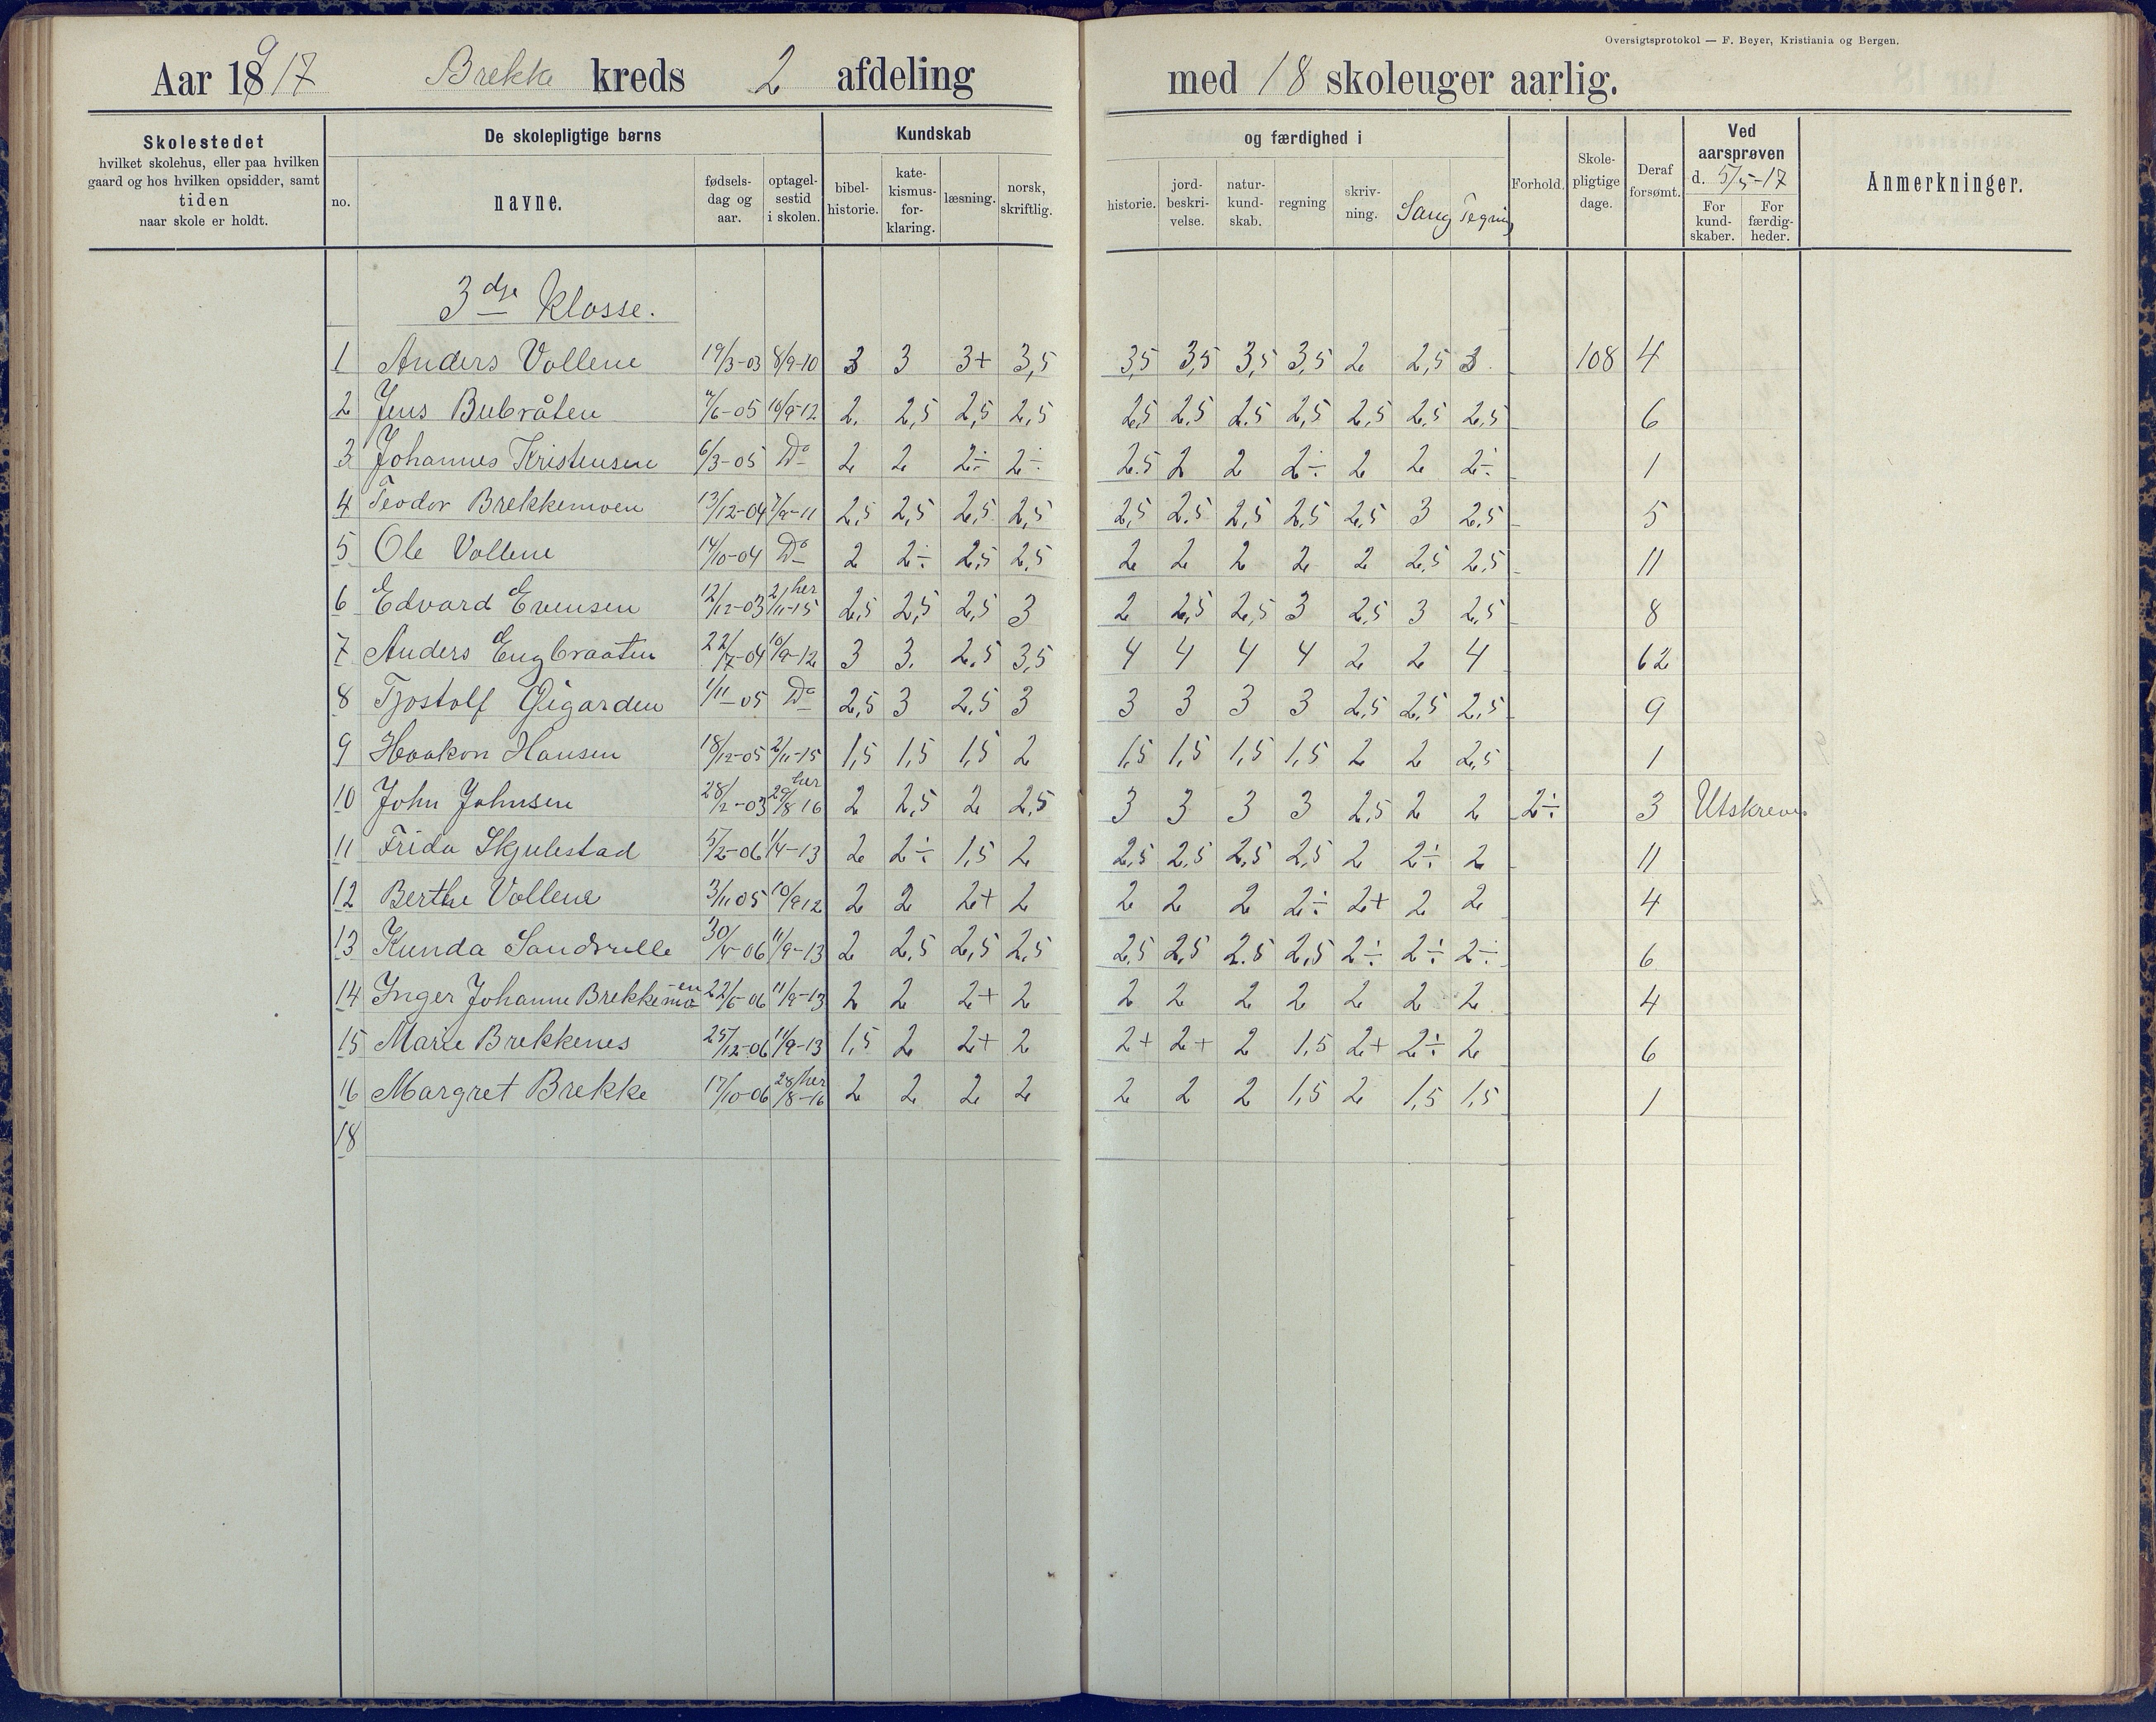 Oversigtsprotokol — F. Beyer, Kristiania og Bergen.
Aar 1917 Brekke kreds 2 afdeling med 18 skoleuger aarlig.
Skolestedet
hvilket skolehus, eller paa hvilken
gaard og hos hvilken opsidder, samt
tiden
naar skole er holdt.
De skolepligtige børns
no.
navne.
fødsels-
dag og
aar.
optagel-
sestid
i skolen.
Kundskab
bibel-
historie.
kate-
kismus-
for-
klaring.
læsning.
norsk,
skriftlig.
og færdighed i
historie.
jord-
beskri-
velse.
natur-
kund-
skab.
regning
skriv-
ning.
Sang
Tegning
Forhold.
Skole-
pligtige
dage.
Deraf
forsømt.
Ved
aarsprøven
d. 5/5-17
For
kund-
skaber.
For
færdig-
heder.
Anmerkninger.
3dje Klasse.
1 Anders Vollene 19/3-03 8/9-10 3 3 3+ 3,5 3,5 3,5 3,5 3,5 2 2,5 3 108 4
2 Jens Bubråten /6-05 10/9-12 2. 2,5 2,5 2,5 2,5 2,5 2,5 2,5 2,5 2,5 2,5 6
3 Johannes Kristensen 6/3-05 Do 2 2 2÷ 2÷ 2.5 2 2 2÷ 2 2 2÷ 1
4 Teodor Brekkemoen 13/12-04 7/9-11 2,5 2,5 2,5 2,5 2,5 2,5 2,5 2,5 2,5 3 2,5 5
5 Ole Vollene 14/10-04 Do 2 2÷ 2,5 2,5 2 2 2 2 2 2,5 2,5 11
6 Edvard Evensen 12/12-03 2/11-15 her 2,5 2,5 2,5 3 2 2,5 2,5 3 2,5 3 2,5 8
7 Anders Engbraaten 22/7-04 10/9-12 3 3. 2,5 3,5 4 4 4 4 2 2 4 62
8 Tjostolf Øigarden 1/11-05 Do 2,5 3 2,5 3 3 3 3 3 2,5 2,5 2,5 9
9 Haakon Hansen 18/12-05 2/11-15 1,5 1,5 1,5 2 1,5 1,5 1,5 1,5 2 2 2,5 1
10 John Johnsen 28/2-03 29/8 16 her 2 2,5 2 2,5 3 3 3 3 2,5 2 2 2÷ 3 Utskreven
11 Frida Skjulestad 5/2-06 1/4-13 2 2÷ 1,5 2 2,5 2,5 2,5 2,5 2 2÷ 2 11
12 Berthe Vollene 3/11 05 10/9 12 2 2 2+ 2 2 2 2 2÷ 2+ 2 2 4
13 Kunda Sandvulle 30/4-06 11/9-13 2 2,5 2,5 2,5 2,5 2,5 2.5 2,5 2÷ 2÷ 2÷ 6
14 Inger Johanne Brekkemo-en 22/6-06 11/9-13 2 2 2+ 2 2 2 2 2 2 2 2 4
15 Marie Brekkenes 25/12-06 11/9-13 1,5 2 2+ 2 2+ 2+ 2 1,5 2+ 2÷ 2 6
16 Margret Brekke 17/10-06 28/8-16 her 2 2 2 2 2 2 2 1,5 2 1,5 1,5 1
18